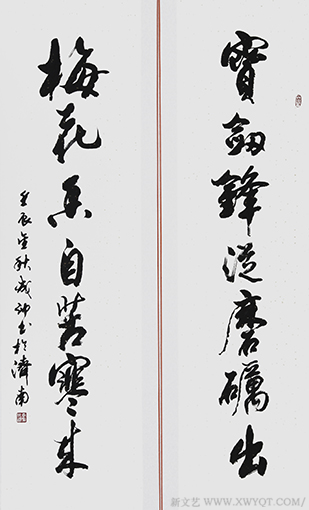 寶劍鋒從磨礪出
梅花香自苦寒來
壬辰金秋成仲书於濟南
新文艺 WWW.XWYQT.COM/